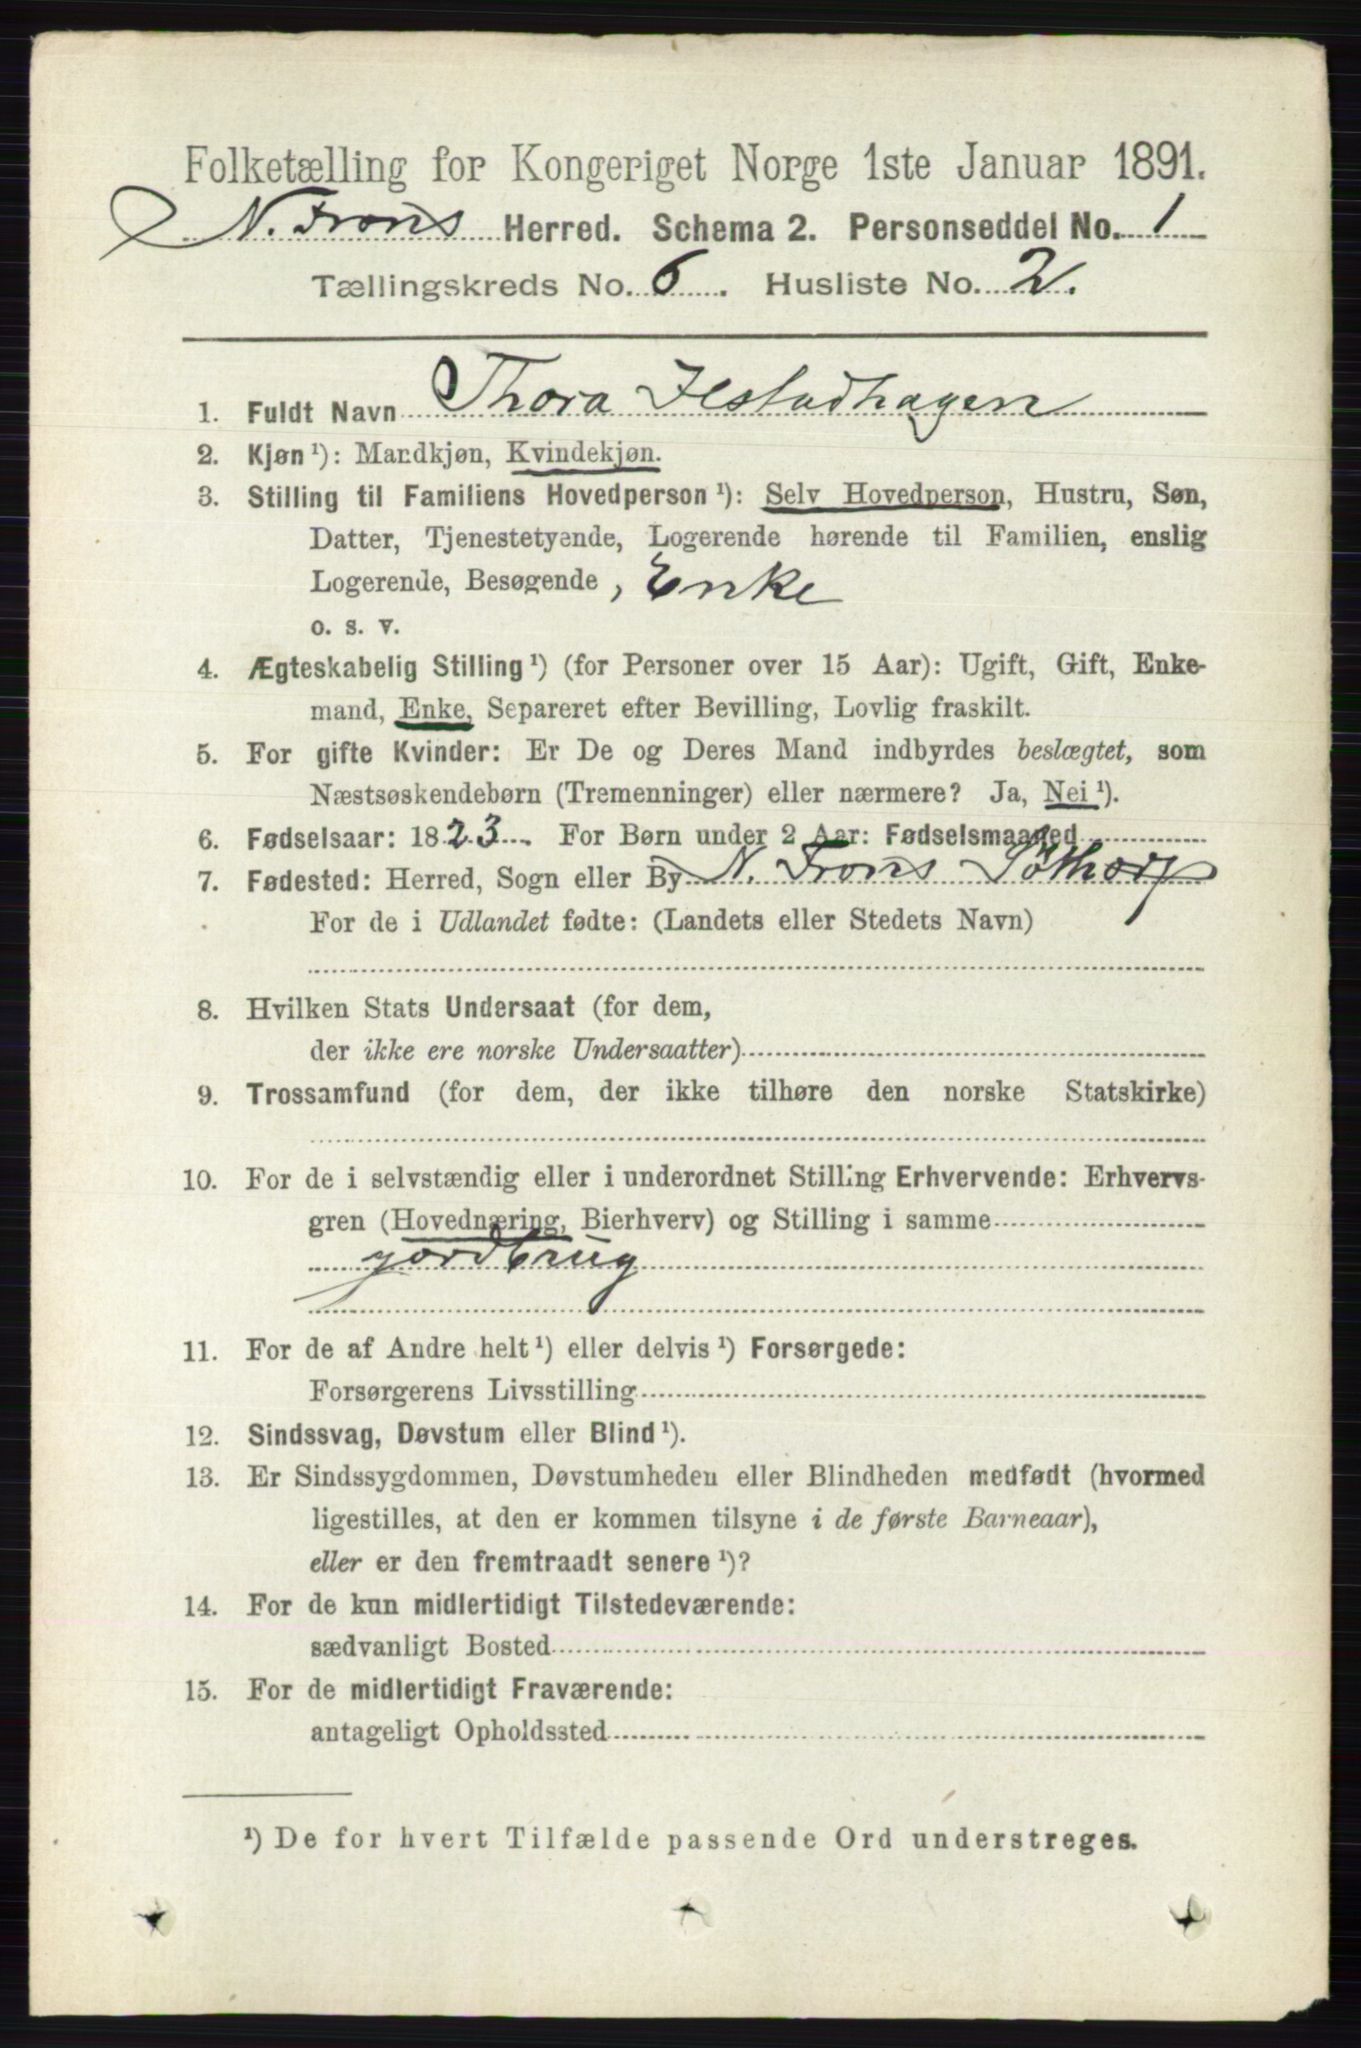 Folketælling for Kongeriget Norge 1ste Januar 1891.
N. Frons Herred. Schema 2. Personseddel No. 1
Tællingskreds No. 6. Husliste No. 2.
1. Fuldt Navn Thora Ilstadhagen
2. Kjøn ¹): Mandkjøn, Kvindekjøn.
3. Stilling til Familiens Hovedperson ¹): Selv Hovedperson, Hustru, Søn,
Datter, Tjenestetyende, Logerende hørende til Familien, enslig
Logerende, Besøgende , Enke
o. s. v.
4. Ægteskabelig Stilling ¹) (for Personer over 15 Aar): Ugift, Gift, Enke-
mand, Enke, Separeret efter Bevilling, Lovlig fraskilt.
5. For gifte Kvinder: Er De og Deres Mand indbyrdes beslægtet, som
Næstsøskendebørn (Tremenninger) eller nærmere? Ja, Nei ¹).
6. Fødselsaar: 1823. For Børn under 2 Aar: Fødselsmaaned
7. Fødested: Herred, Sogn eller By N. Frons Söthorp
For de i Udlandet fødte: (Landets eller Stedets Navn)
8. Hvilken Stats Undersaat (for dem,
der ikke ere norske Undersaatter)
9. Trossamfund (for dem, der ikke tilhøre den norske Statskirke)
10. For de i selvstændig eller i underordnet Stilling Erhvervende: Erhvervs-
gren (Hovednæring, Bierhverv) og Stilling i samme
gordbrug
11. For de af Andre helt ¹) eller delvis ¹) Forsørgede:
Forsørgerens Livsstilling
12. Sindssvag, Døvstum eller Blind ¹).
13. Er Sindssygdommen, Døvstumheden eller Blindheden medfødt (hvormed
ligestilles, at den er kommen tilsyne i de første Barneaar),
eller er den fremtraadt senere ¹)?
14. For de kun midlertidigt Tilstedeværende:
sædvanligt Bosted
15. For de midlertidigt Fraværende:
antageligt Opholdssted
¹) De for hvert Tilfælde passende Ord understreges.